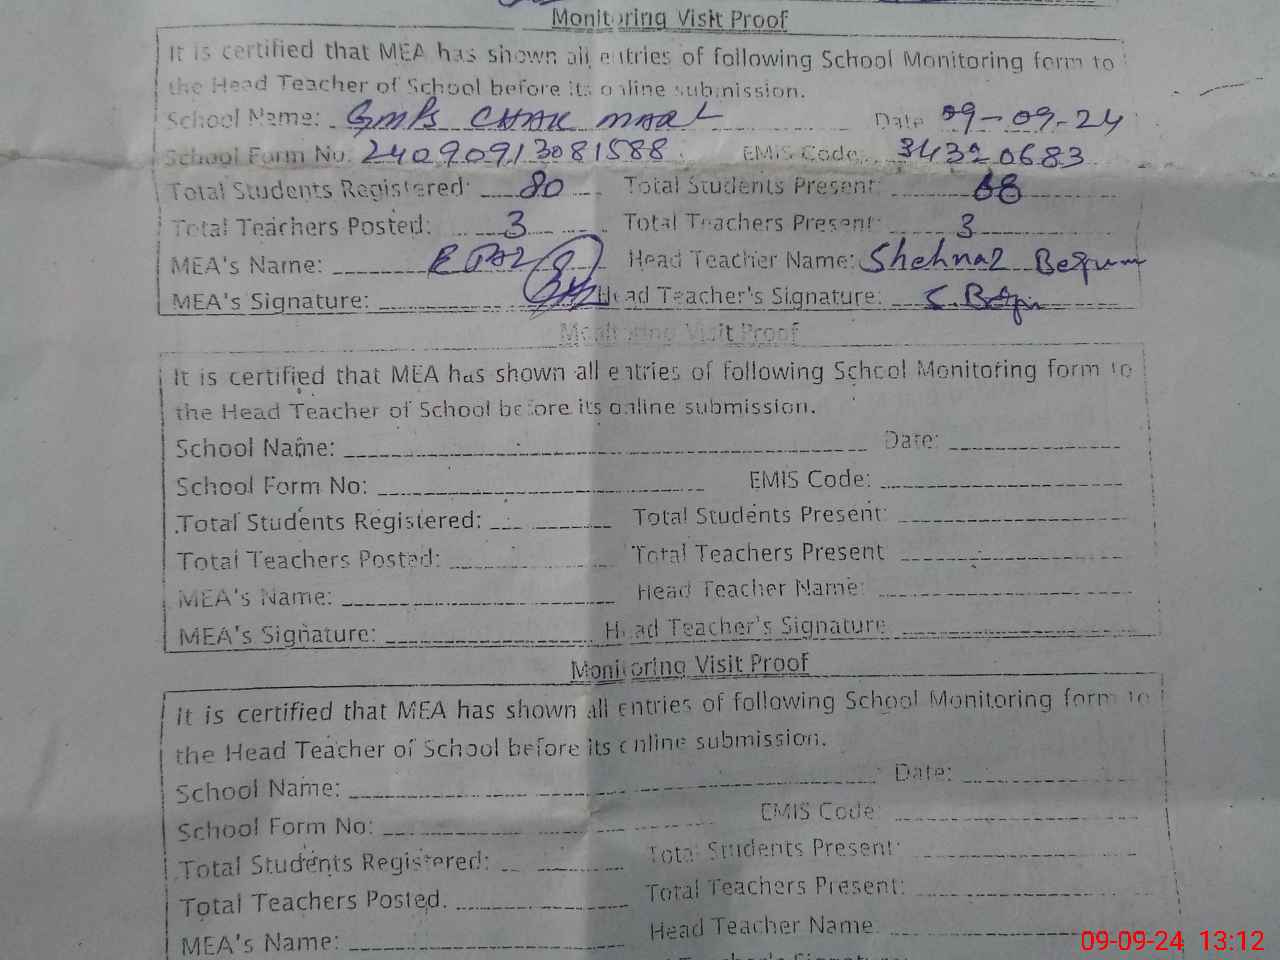 Monitoring Visit Proof
It is certified that MEA has shown all entries of following School Monitoring form to
the Head Teacher of School before its online submission.
School Name: GMPS CHAK MARL Date 09-09-24
School Form No. 24090913081588 EMIS Code: 34320683
Total Students Registered: 80 Total Students Present: 68
Total Teachers Posted: 3 Total Teachers Present: 3
MEA's Name: Head Teacher Name: Shehnaz Begum
MEA's Signature: Head Teacher's Signature: S. Begum
Monitoring Visit Proof
It is certified that MEA has shown all entries of following School Monitoring form to
the Head Teacher of School before its online submission.
School Name: Date:
School Form No: EMIS Code:
Total Students Registered: Total Students Present:
Total Teachers Posted: Total Teachers Present
MEA's Name: Head Teacher Name:
MEA's Signature: Head Teacher's Signature
Monitoring Visit Proof
It is certified that MEA has shown all entries of following School Monitoring form to
the Head Teacher of School before its online submission.
School Name: Date:
School Form No: EMIS Code:
Total Students Registered: Total Students Present:
Total Teachers Posted. Total Teachers Present:
MEA's Name: Head Teacher Name:
09-09-24 13:12